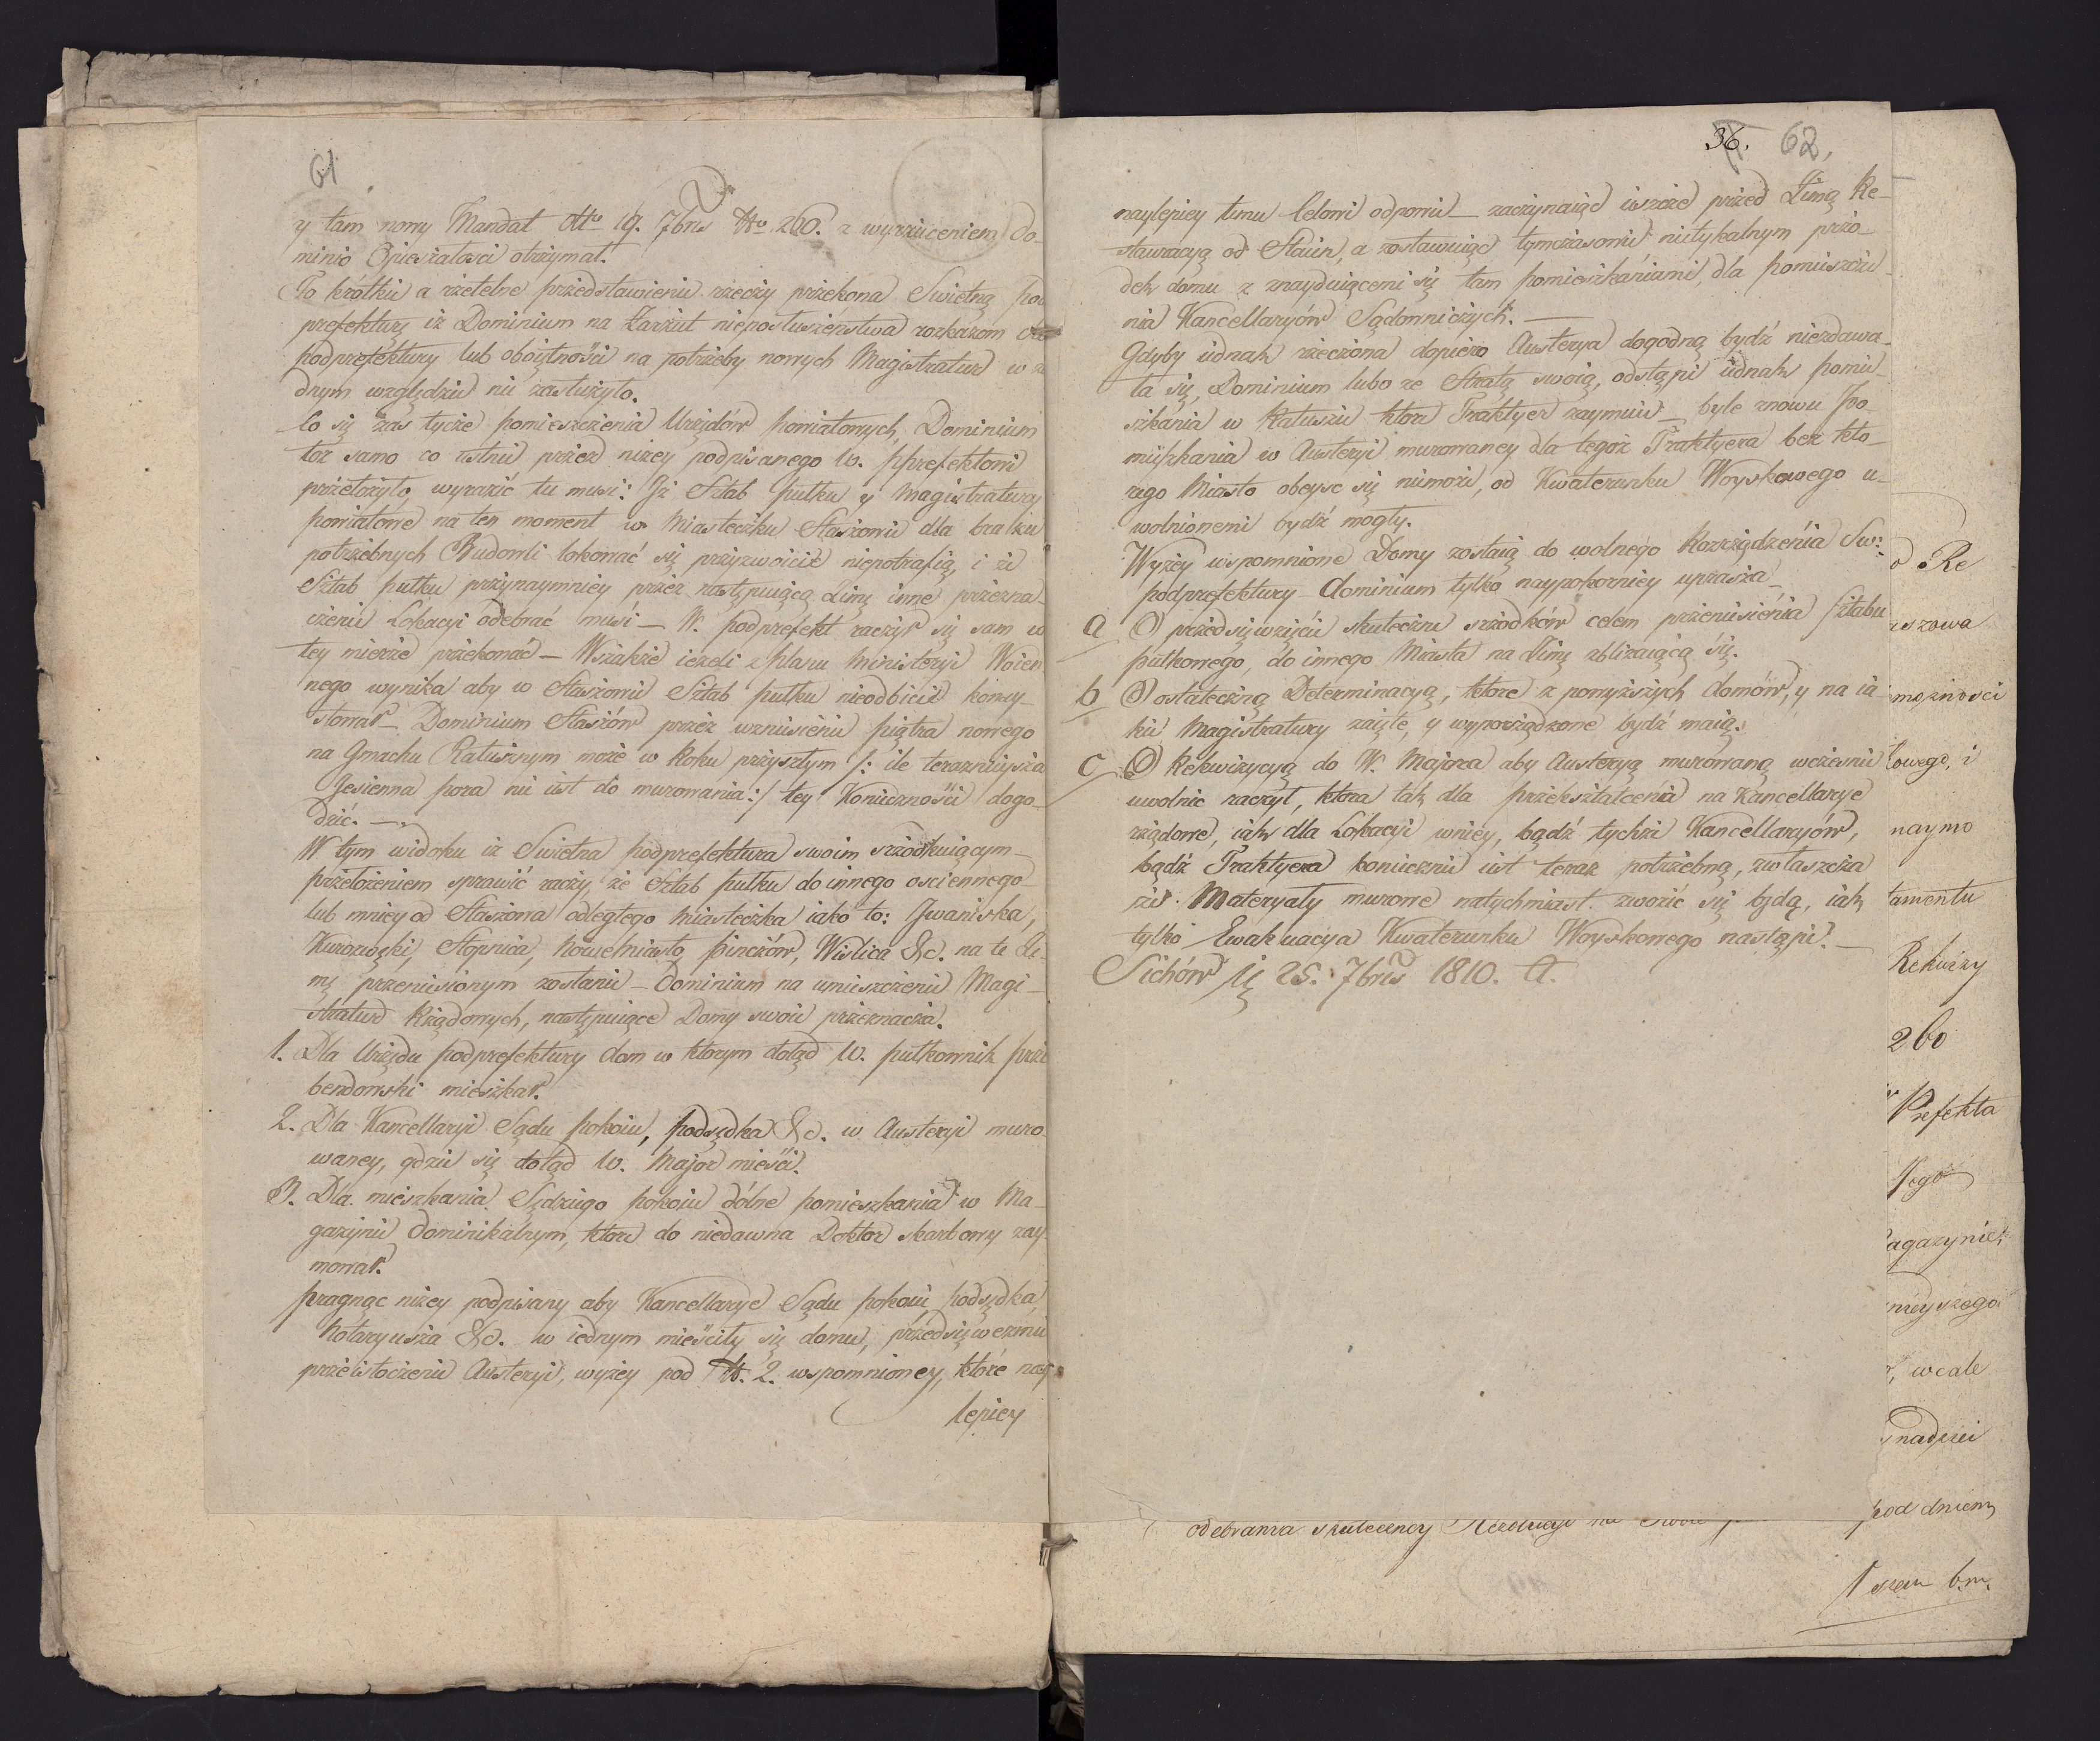 61
y tam nowy Mandat dto 19. 7bris No 260. z wyrzuceniem Do-
minio Opieszałości otrzymał.
To krótkie a rzetelne przedstawienie rzeczy przekona Swietną pod
prefekturę iż Dominium na Zarzut nieposłuszeństwa rozkazom
podprefektury lub oboiętności na potrzeby nowych Magistratur w ża
dnym względzie nie zasłużyło.
Co się zas tycze pomieszczenia Urzędów powiatowych, Dominium
toż samo co ustnie przez niżey podpisanego W. pprefektowi
przełożyło, wyrazić tu musi: Iż Sztab pułku y magistratury
powiatowe na ten moment w Miasteczku Staszowie dla braku
potrzebnych Budowli lokować się przyzwoicie niepotrafią, i że
Sztab pułku przynaymniey przez następuiącą Zimę inne przezna-
czenie Lokacyi odebrać musi — W. podprefekt raczył się sam w
tey mierze przekonać — Wszakże ieżeli z planu Ministeryi Woien
nego wynika aby w Staszowie Sztab pułku nieodbicie konsy-
stował — Dominium Staszów przez wzniesienie piątra nowego
na Gmachu Ratusznym może w Roku przyszłym /: ile teraznieysza
Jesienna pora nie iest do murowania :/ tey Konieczności dogo-
dzić. —
W tym widoku iż Swietna podprefektura swoim srzodkuiącym
przełożeniem sprawić raczy, że Sztab pułku do innego osciennego
lub mniey od Staszowa odległego miasteczka iako to: Iwaniska,
Kurozwęki, Stopnica, Nowemiasto, pinczów, Wislica &c. na te Zi-
mę przeniesionym zostanie — Dominium na umieszczenie Magi-
stratur Rządowych, następuiące Domy swoie przeznacza.
1. Dla Urzędu podprefektury dom w ktorym dotąd W. pułkownik prze
bendowski mieszkał.
2. Dla Kancellaryi Sądu pokoiu, podsędka &c. w Austeryi muro-
waney, gdzie się dotąd W. Major mieści.
3. Dla mieszkania Sędziego pokoiu dólne pomieszkania w Ma-
gazynie Dominikalnym, ktore do niedawna Doktor skarbowy zay-
mował.
pragnąc niżey podpisany aby Kancellarye Sądu pokoiu, podsędka,
Notaryusza &c. w iednym mieściły się domu, przedsięwezmie
przeistoczenie Austeryi, wyżey pod No. 2. wspomnioney, które nay-
lepiey
36. 62,
naylepiey temu celowi odpowie — zaczynaiąc ieszcze przed Zimą Re-
stauracyą od Staien, a zostawuiąc tymczasowie nietykalnym przo-
dek domu z znayduiącemi się tam pomieszkaniami, dla pomieszcze-
nia Kancellaryów Sądowniczych. —
Gdyby iednak rzeczona dopiero Austerya dogodną bydź niezdawa-
ła się, Dominium lubo ze Stratą swoią, odstąpi iednak pomie-
szkania w Ratuszu ktore Traktyer zaymuie — byle znowu po-
mieszkania w Austeryi murowaney dla tegoż Traktyera bez kto-
rego Miasto obeysc się niemoże, od Kwaterunku Woyskowego u-
wolnionemi bydź mogły.
Wyżey wspomnione Domy zostaią do wolnego Rozrządzenia Sw:
podprefektury — Dominium tylko naypokorniey uprasza —
a O przedsięwzięcie skuteczne srzodków celem przeniesienia sztabu
pułkowego, do innego Miasta na Zimę zbliżaiącą się.
b O ostateczną Determinacyą, które z powyższych domów, y na ia
kie Magistratury zaięte, y wyporządzone bydź maią.
c O Rekwizycyą do W. Majora aby Austeryą murowaną wcześnie
uwolnić raczył, ktora tak dla przekształcenia na Kancellarye
rządowe, iak dla Lokacyi wniey, bądź tychże Kancellaryów,
bądź Traktyera koniecznie iest teraz potrzebną, zwłaszcza
że Materyały murowe natychmiast zwozić się będą, iak
tylko Ewakuacya Kwaterunku Woyskowego nastąpi. —
Sichów 25. 7bris 1810.
Re
uszowa
możności
lowego, i
naymo
tamentu
Rekwizy
260
Prefekta
agazynie
nieyszego
wcale
nadziei
odebrania skuteczney
pod dniem